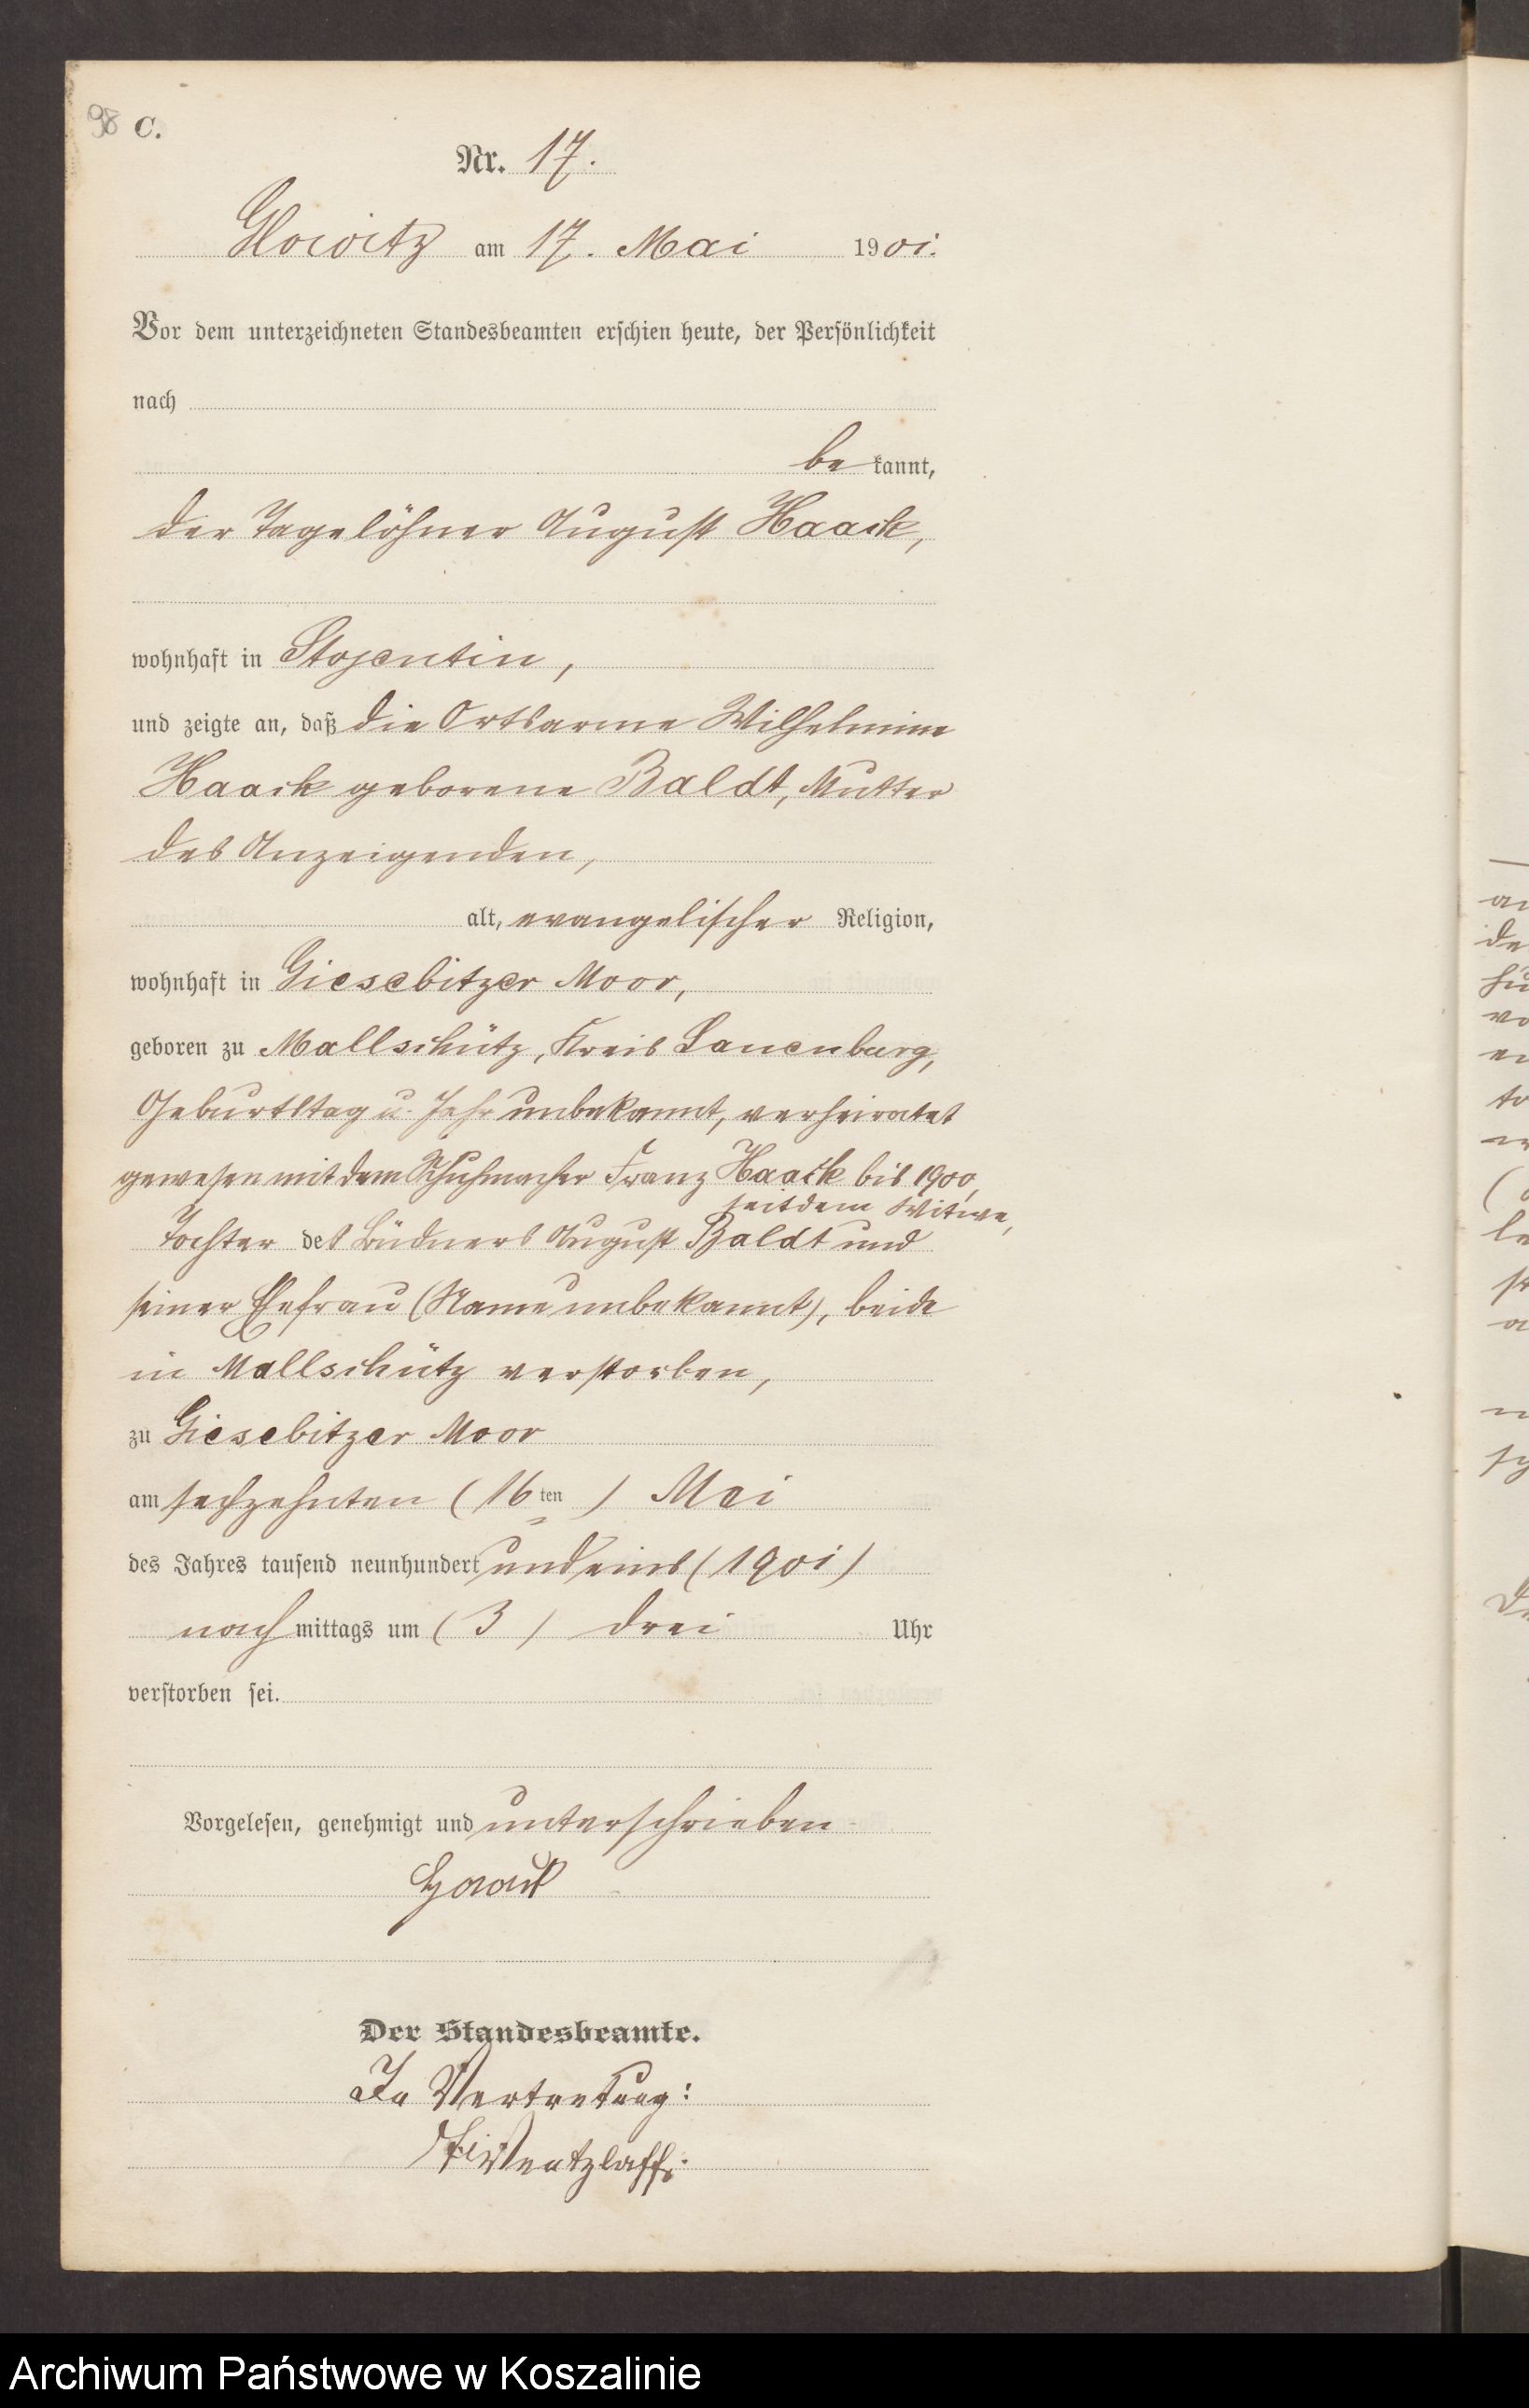 98 C.
Nr. 17.
Glowitz am 17. Mai 1901.
Vor dem unterzeichneten Standesbeamten erschien heute, der Persönlichkeit
nach
be kannt,
der Tagelöhner August Haack,
wohnhaft in Stojentin,
und zeigte an, daß die Ortsarme Wilhelmine
Haack geborene Baldt, Mutter
des Anzeigenden,
alt, evangelischer Religion,
wohnhaft in Giesebitzer Moor,
geboren zu Mallschütz, Kreis Lauenburg,
Geburtstag u. Jahr unbekannt, verheiratet
gewesen mit dem Schuhmacher Franz Haack bis 1900,
seitdem Witwe,
Tochter des Büdners August Baldt und
seiner Ehefrau (Name unbekannt), beide
in Mallschütz verstorben,
zu Giesebitzer Moor
am sechzehnten (16ten) Mai
des Jahres tausend neunhundert und eins (1901)
nach mittags um (3) drei Uhr
verstorben sei.
Vorgelesen, genehmigt und unterschrieben
Haack
Der Standesbeamte.
In Vertretung:
Wentzlaff.
Archiwum Państwowe w Koszalinie